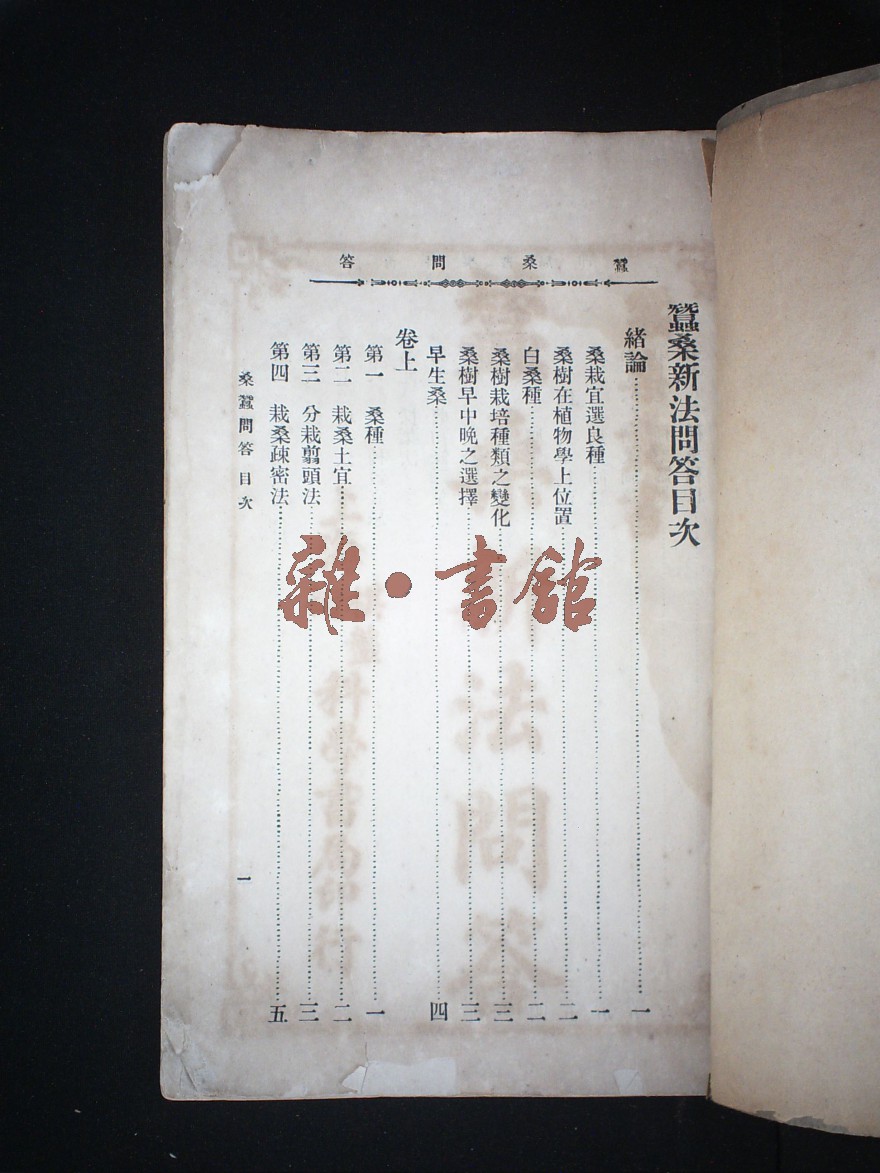 蠶桑問答
蠶桑新法問答目次
緒論……一
桑栽宜選良種……一
桑樹在植物學上位置……二
白桑種……二
桑樹栽培種類之變化……三
桑樹早中晚之選擇……三
早生桑……四
卷上
第一 桑種……一
第二 栽桑土宜……二
第三 分栽翦頭法……三
第四 栽桑疎密法……五
桑蠶問答 目次
一
雜·書館
法問答